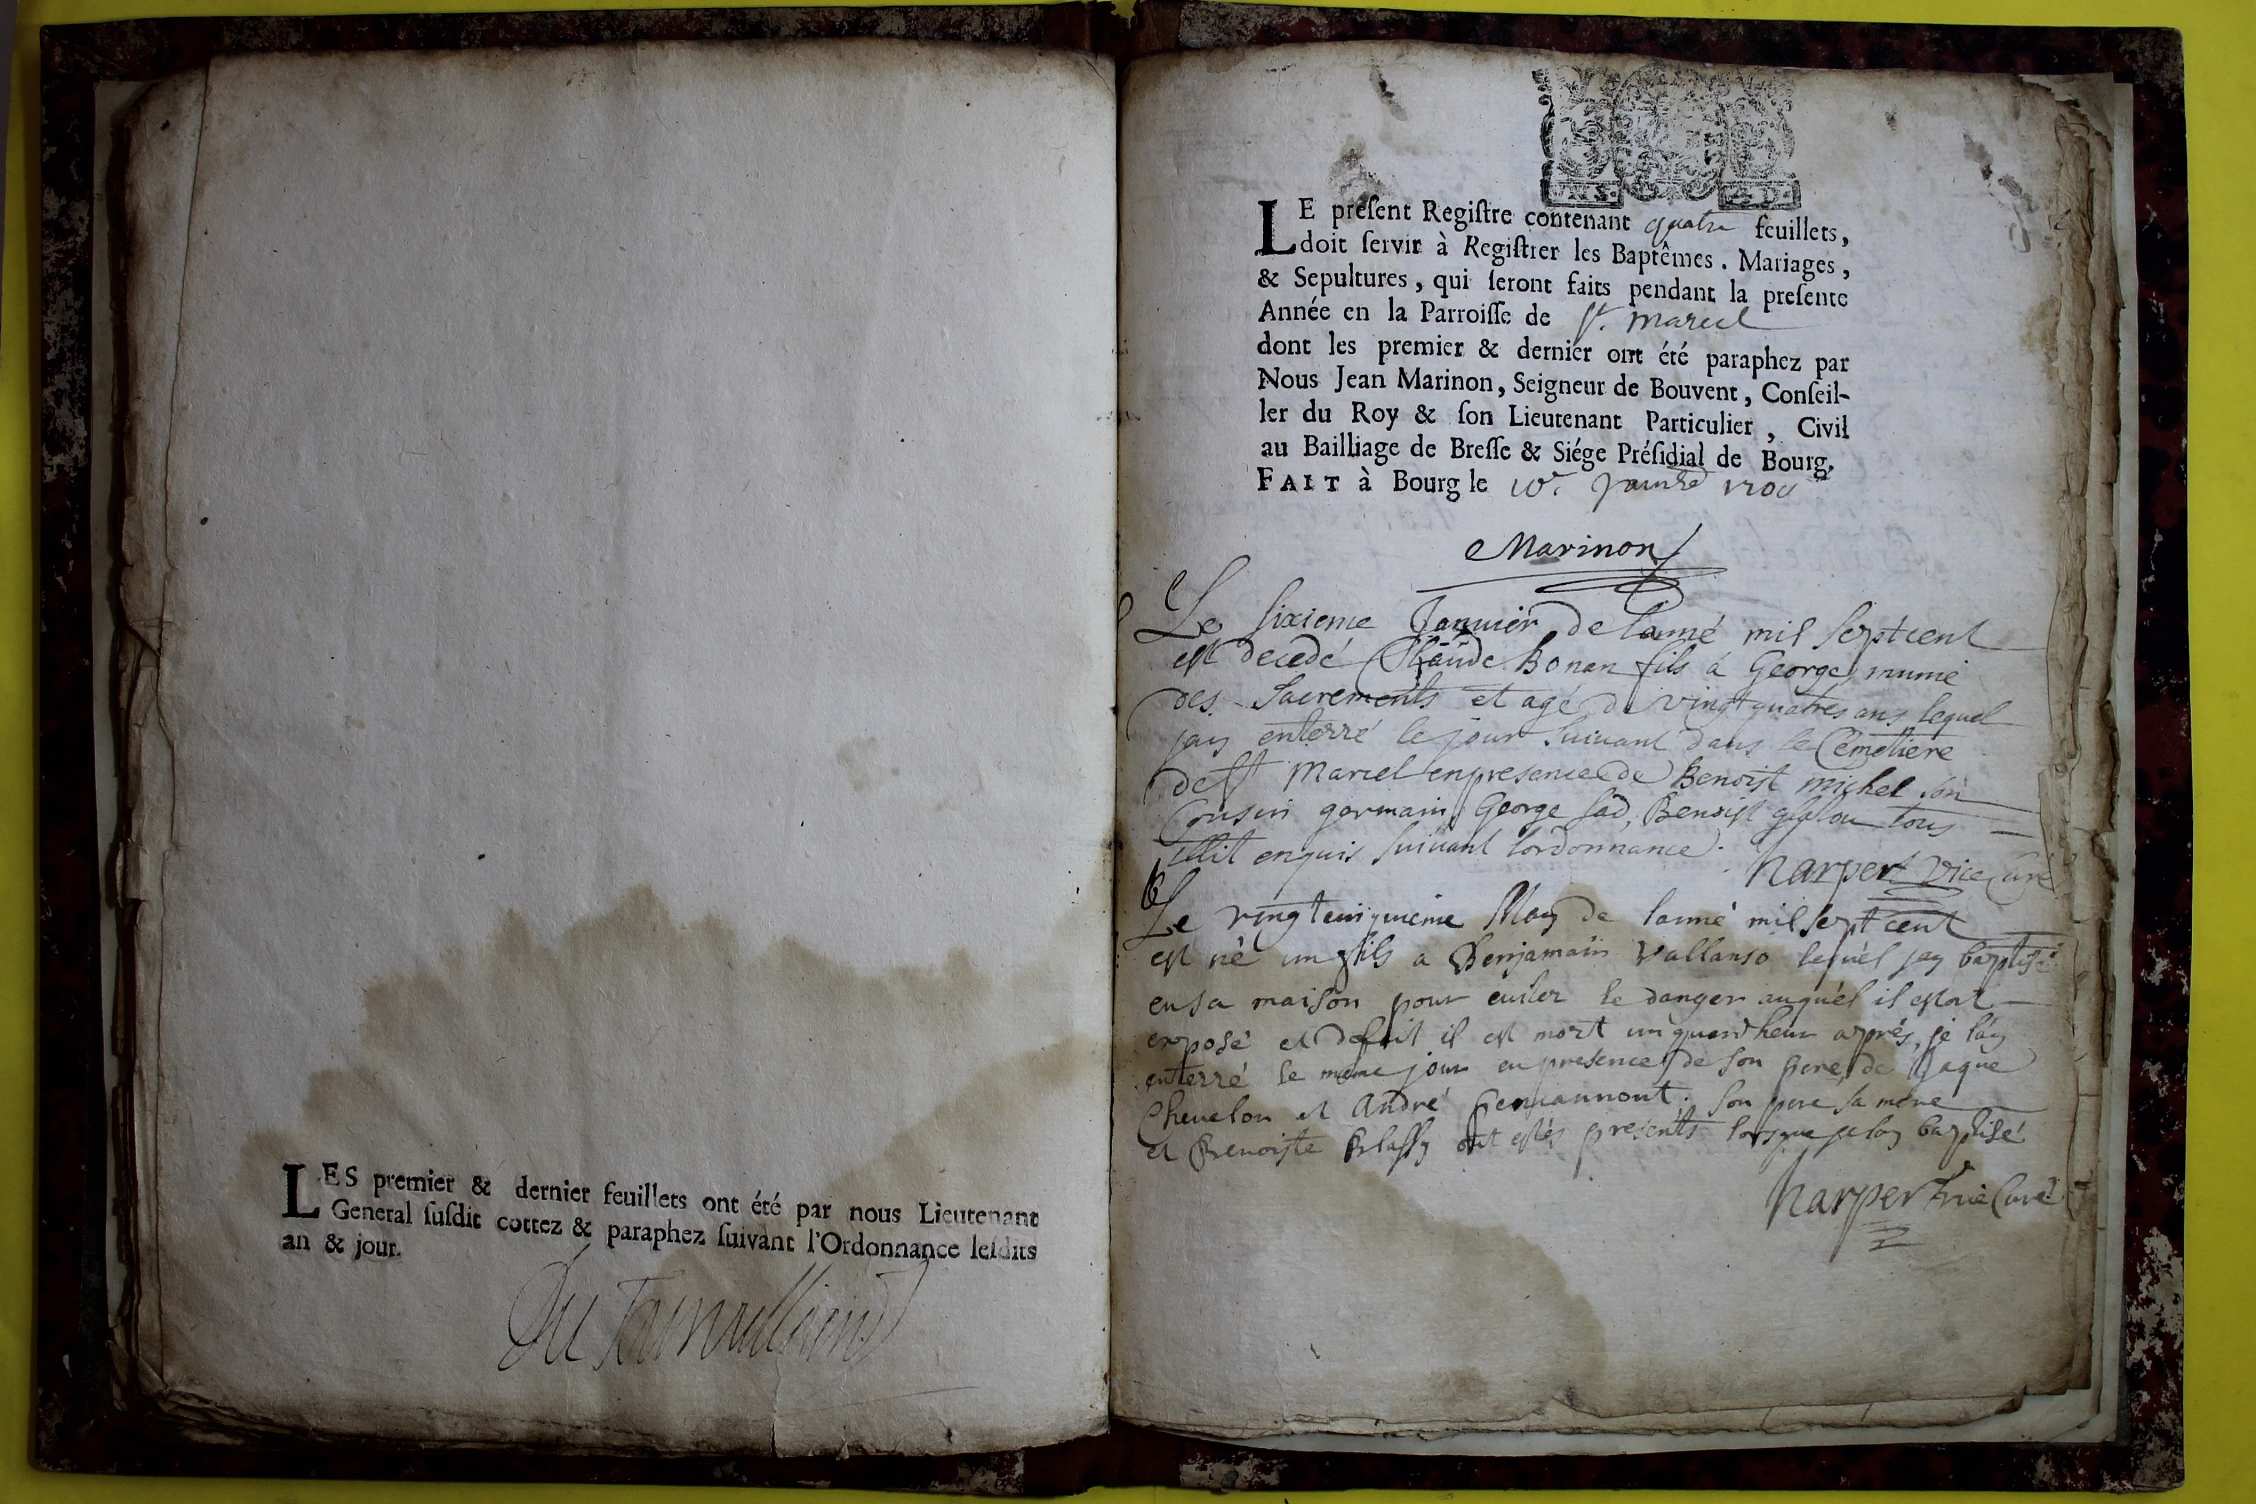 LES premier & dernier feuillets ont été par nous Lieutenant
General ſuſdit cottez & paraphez ſuivant l'Ordonnance leſdits
an & jour.
LE preſent Regiſtre contenant quatre feuillets,
doit ſervir à Regiſtrer les Baptêmes. Mariages,
& Sepultures, qui ſeront faits pendant la preſente
Année en la Parroiſſe de St. Marcel
dont les premier & dernier ont été paraphez par
Nous Jean Marinon, Seigneur de Bouvent, Conſeil-
ler du Roy & ſon Lieutenant Particulier, Civil
au Bailliage de Breſſe & Siége Préſidial de Bourg.
FAIT à Bourg le
Marinon
Le sixieme Januier de lanné mil sept cent
est decedé Claude Bonan fils à George munié
des Sacrements et agé de vingt quatres ans lequel
jay enterré le jour suivant dans le Cemetiere
de St Marcel en presence de Benoist Michel son
Cousin germain George Benoist tous
enquis suivant lordonnance.
harpert vice Curé
Le vingt May de lanné mil sept cent
est né un fils a Benjamain Vallanso lequel jay baptisé
en sa maison pour euiter le danger auquel il estoit
exposé et defait il est mort un quard heur aprés, je lay
enterré le meme jour en presence de son pere, de Jaque
Cheuelon et André son pere sa mere
et Benoiste ont estés presents lorsque je lay baptisé
harpert vice Curé